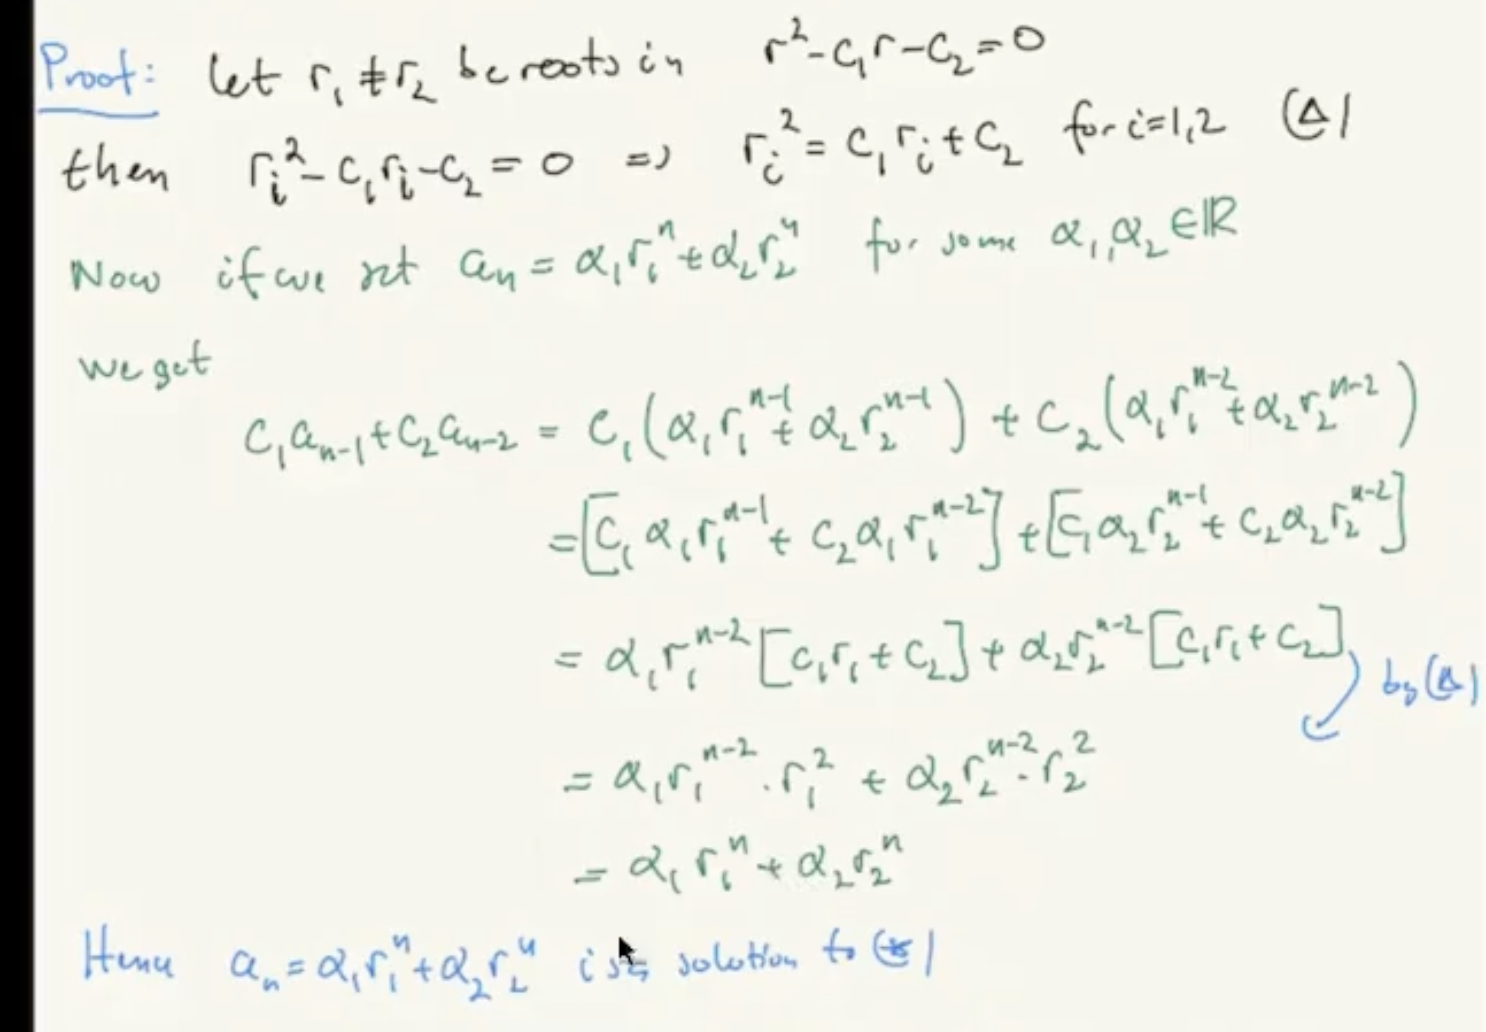 Proof: let r₁ ≠ r₂ be roots in r² - c₁r - c₂ = 0
then rᵢ² - c₁rᵢ - c₂ = 0 => rᵢ² = c₁rᵢ + c₂ for i=1,2 (Δ)
Now if we set aₙ = α₁r₁ⁿ + α₂r₂ⁿ for some α₁, α₂ ∈ ℝ
we get
c₁aₙ₋₁ + c₂aₙ₋₂ = c₁(α₁r₁ⁿ⁻¹ + α₂r₂ⁿ⁻¹) + c₂(α₁r₁ⁿ⁻² + α₂r₂ⁿ⁻²)
= [c₁α₁r₁ⁿ⁻¹ + c₂α₁r₁ⁿ⁻²] + [c₁α₂r₂ⁿ⁻¹ + c₂α₂r₂ⁿ⁻²]
= α₁r₁ⁿ⁻²[c₁r₁ + c₂] + α₂r₂ⁿ⁻²[c₁r₁ + c₂]
by (Δ)
= α₁r₁ⁿ⁻² · r₁² + α₂r₂ⁿ⁻² · r₂²
= α₁r₁ⁿ + α₂r₂ⁿ
Hence aₙ = α₁r₁ⁿ + α₂r₂ⁿ is solution to (*)